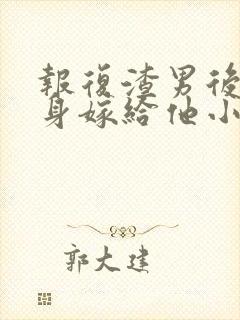 報復渣男後
身嫁給他小
郭大建